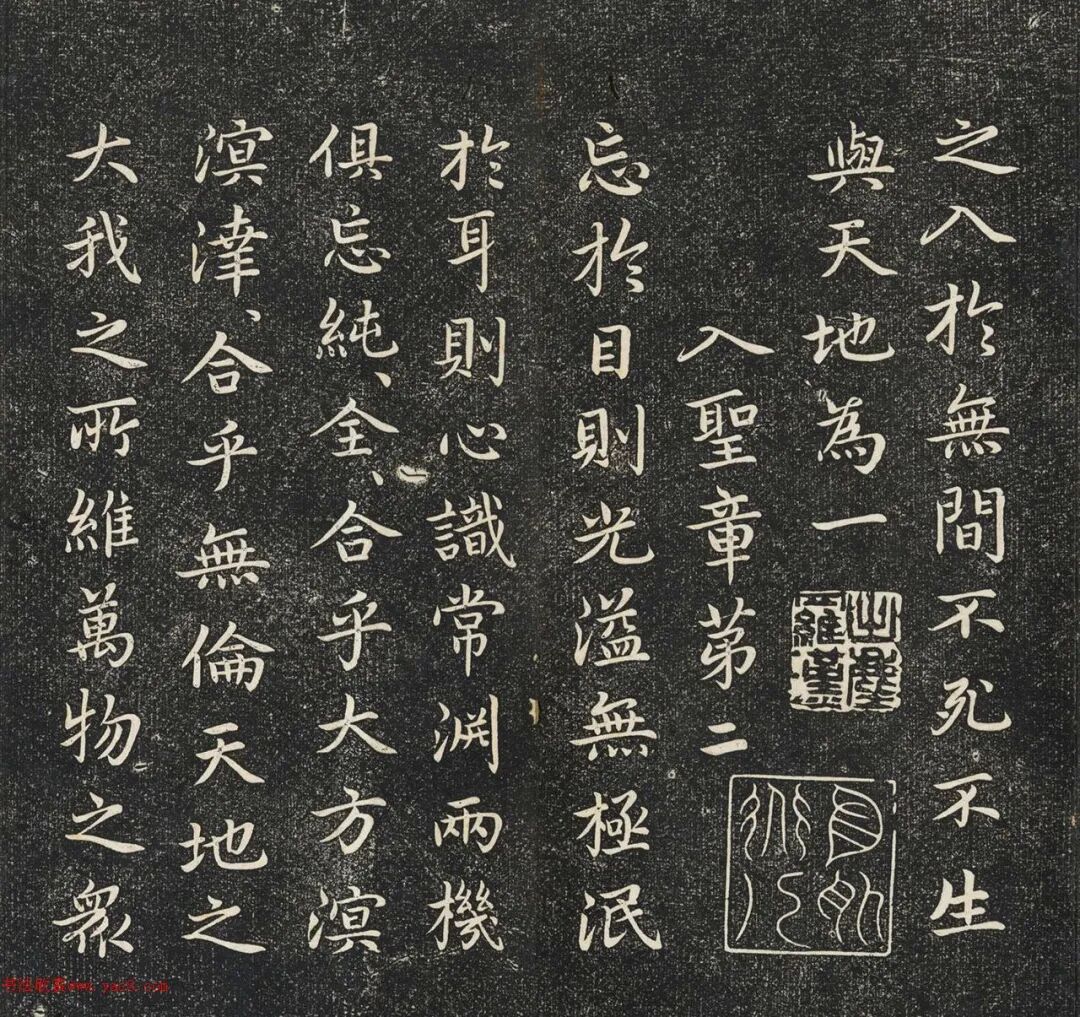 之入於無間不死不生
與天地為一
入聖章苐二
忘於目則光溢無極泯
於耳則心識常淵兩機
俱忘純、全、合乎大方溟
溟涬、合乎無倫天地之
大我之所維萬物之眾